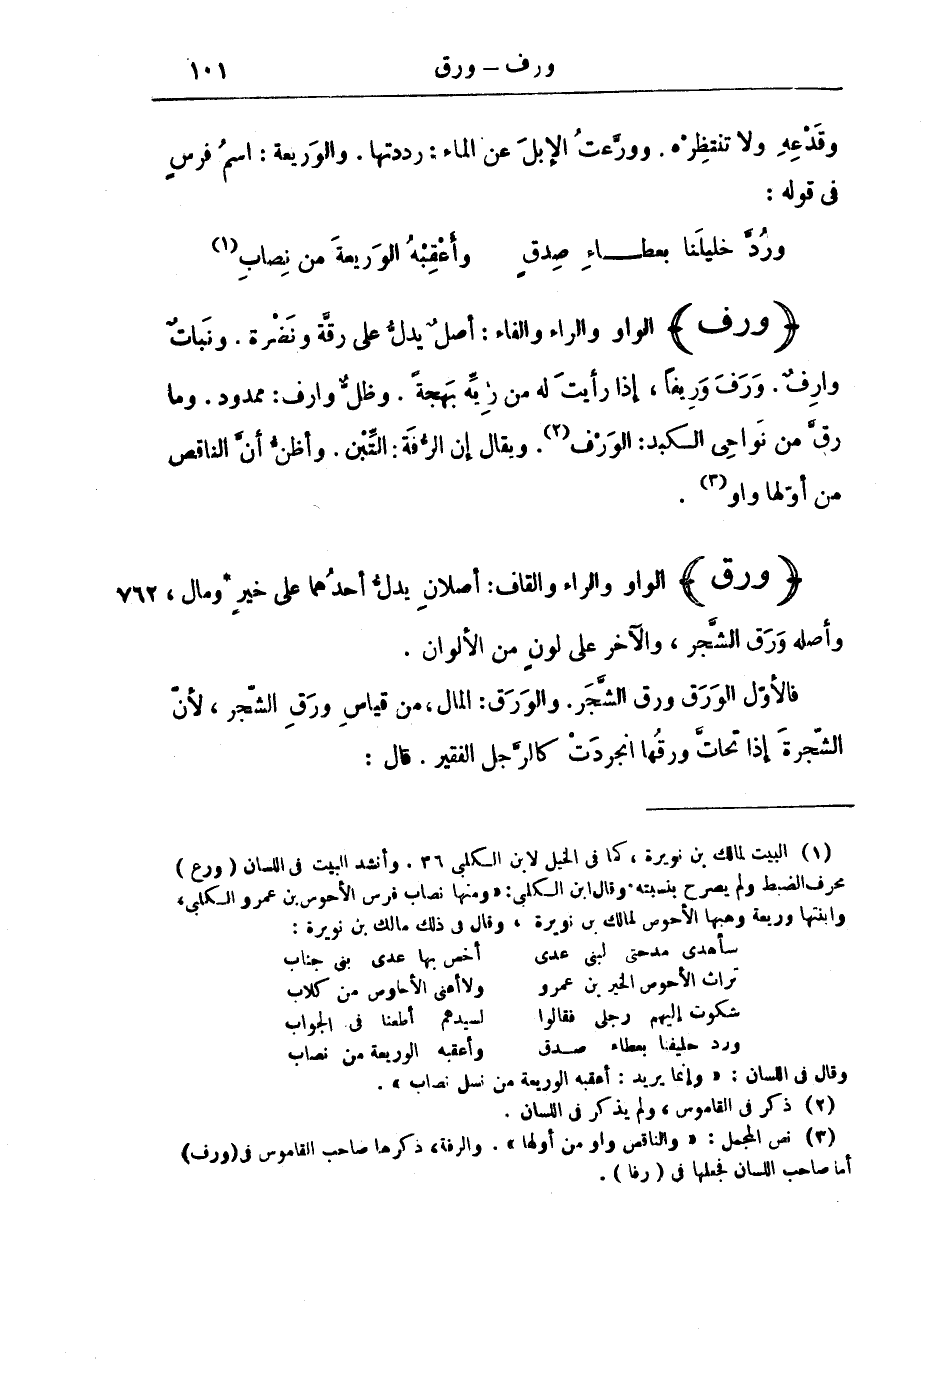 ورف — ورق ١٠١
وقَدْعِهِ ولا تنتظِرْه . وورَّعتُ الإبلَ عن الماء : رددتها . والوَريعة : اسمُ فرسٍ
فى قوله :
ورُدَّ خليلَنا بعطــاءِ صِدقٍ وأَعْقِبْهُ الوَريعةَ من نِصابِ(١)
﴿ ورف ﴾ الواو والراء والفاء : أصلٌ يدلُّ على رقّة ونَضْرة . ونَباتٌ
وارِفٌ . وَرَفَ وَرِيفاً ، إذا رأيتَ له من رِيِّه بَهجةً . وظلٌّ وارف : ممدود . وما
رقَّ من نَواحِى الكبد : الوَرْف(٢) . ويقال إن الرُّفَة : التِّبْن . وأظنُّ أنَّ الناقص
من أوّلها واو(٣) .
﴿ ورق ﴾ الواو والراء والقاف : أصلانِ يدلُّ أحدُهما على خيرٍ *ومال ، ٧٦٢
وأصله وَرَق الشَّجر ، والآخر على لونٍ من الألوان .
فالأوّل الوَرَق ورق الشَّجَر . والوَرَق : المال ، من قياسِ ورقِ الشّجر ، لأنّ
الشّجرةَ إذا تحاتَّ ورقُها انجردَتْ كالرَّجل الفقير . قال :
(١) البيت لمالك بن نويرة ، كما فى الخيل لابن الكلبى ٣٦ . وأنشد البيت فى اللسان ( ورع )
محرف الضبط ولم يصرح بنسبته . وقال ابن الكلبى : « ومنها نصاب فرس الأحوص بن عمرو الكلبى ،
وابنتها وريعة وهبها الأحوص لمالك بن نويرة ، وقال فى ذلك مالك بن نويرة :
سأهدى مدحتى لبنى عدى أخص بها عدى بنى جناب
تراث الأحوص الخير بن عمرو ولا أعنى الأحاوص من كلاب
شكوت إليهم رجلى فقالوا لسيدهم أطعنا فى الجواب
ورد حليفنا بعطاء صــدق وأعقبه الوريعة من نصاب
وقال فى اللسان : « وإنما يريد : أعقبه الوريعة من نسل نصاب » .
(٢) ذكر فى القاموس ، ولم يذكر فى اللسان .
(٣) نص المجمل : « والناقص واو من أولها » . والرفة ، ذكرها صاحب القاموس فى (ورف)
أما صاحب اللسان فجعلها فى ( رفا ) .